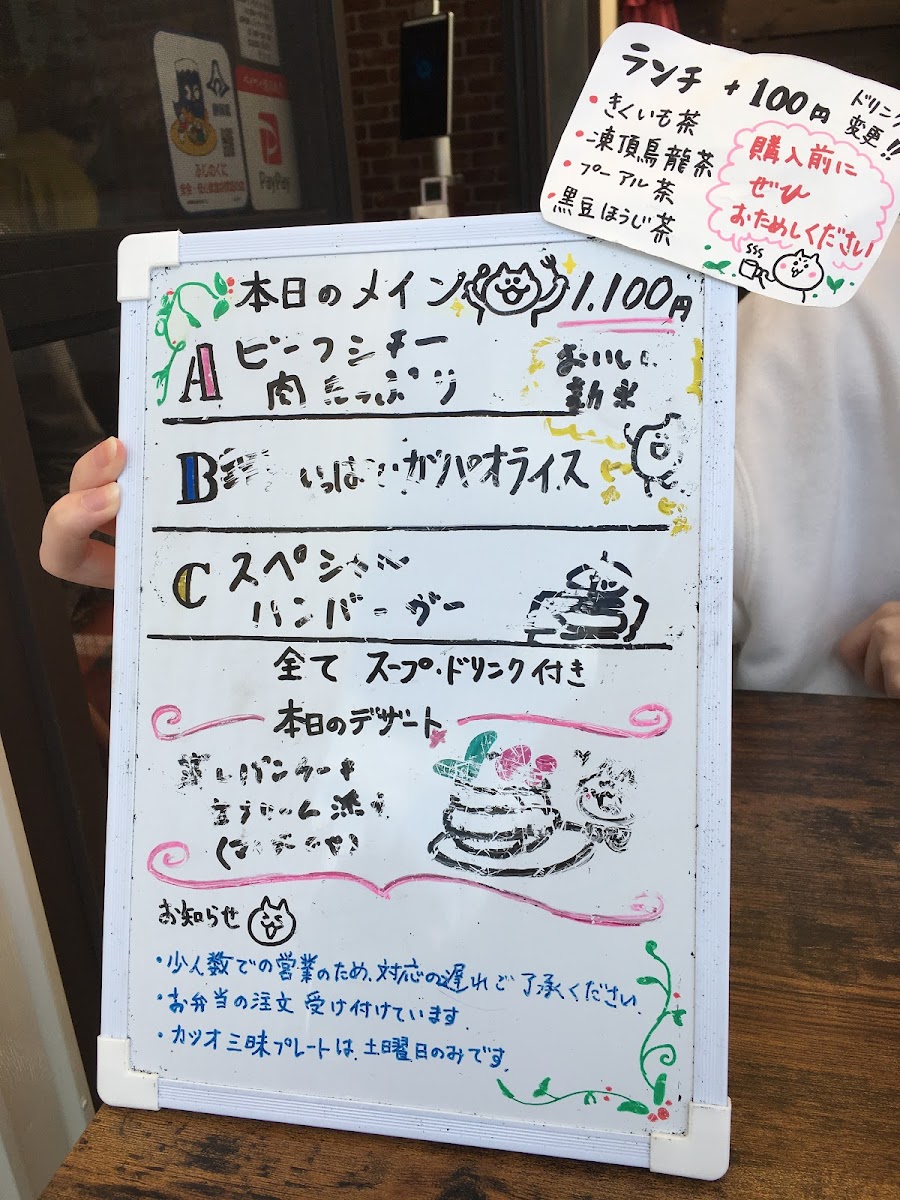 ランチ +100円 ドリンク
変更!!
・きくいも茶
・凍頂烏龍茶
・プーアル茶
・黒豆ほうじ茶
購入前に
ぜひ
おためしください
PayPay
本日のメイン 1.100円
A ビーフシチー
肉たっぷり
おいしい
新米
B いっぱい ガパオライス
C スペシャル
ハンバーグー
全て スープ・ドリンク付き
本日のデザート
蒸しパンケーキ
お知らせ
・少人数での営業のため、対応の遅れご了承ください
・お弁当の注文 受け付けています
・カツオ三昧プレートは、土曜日のみです。